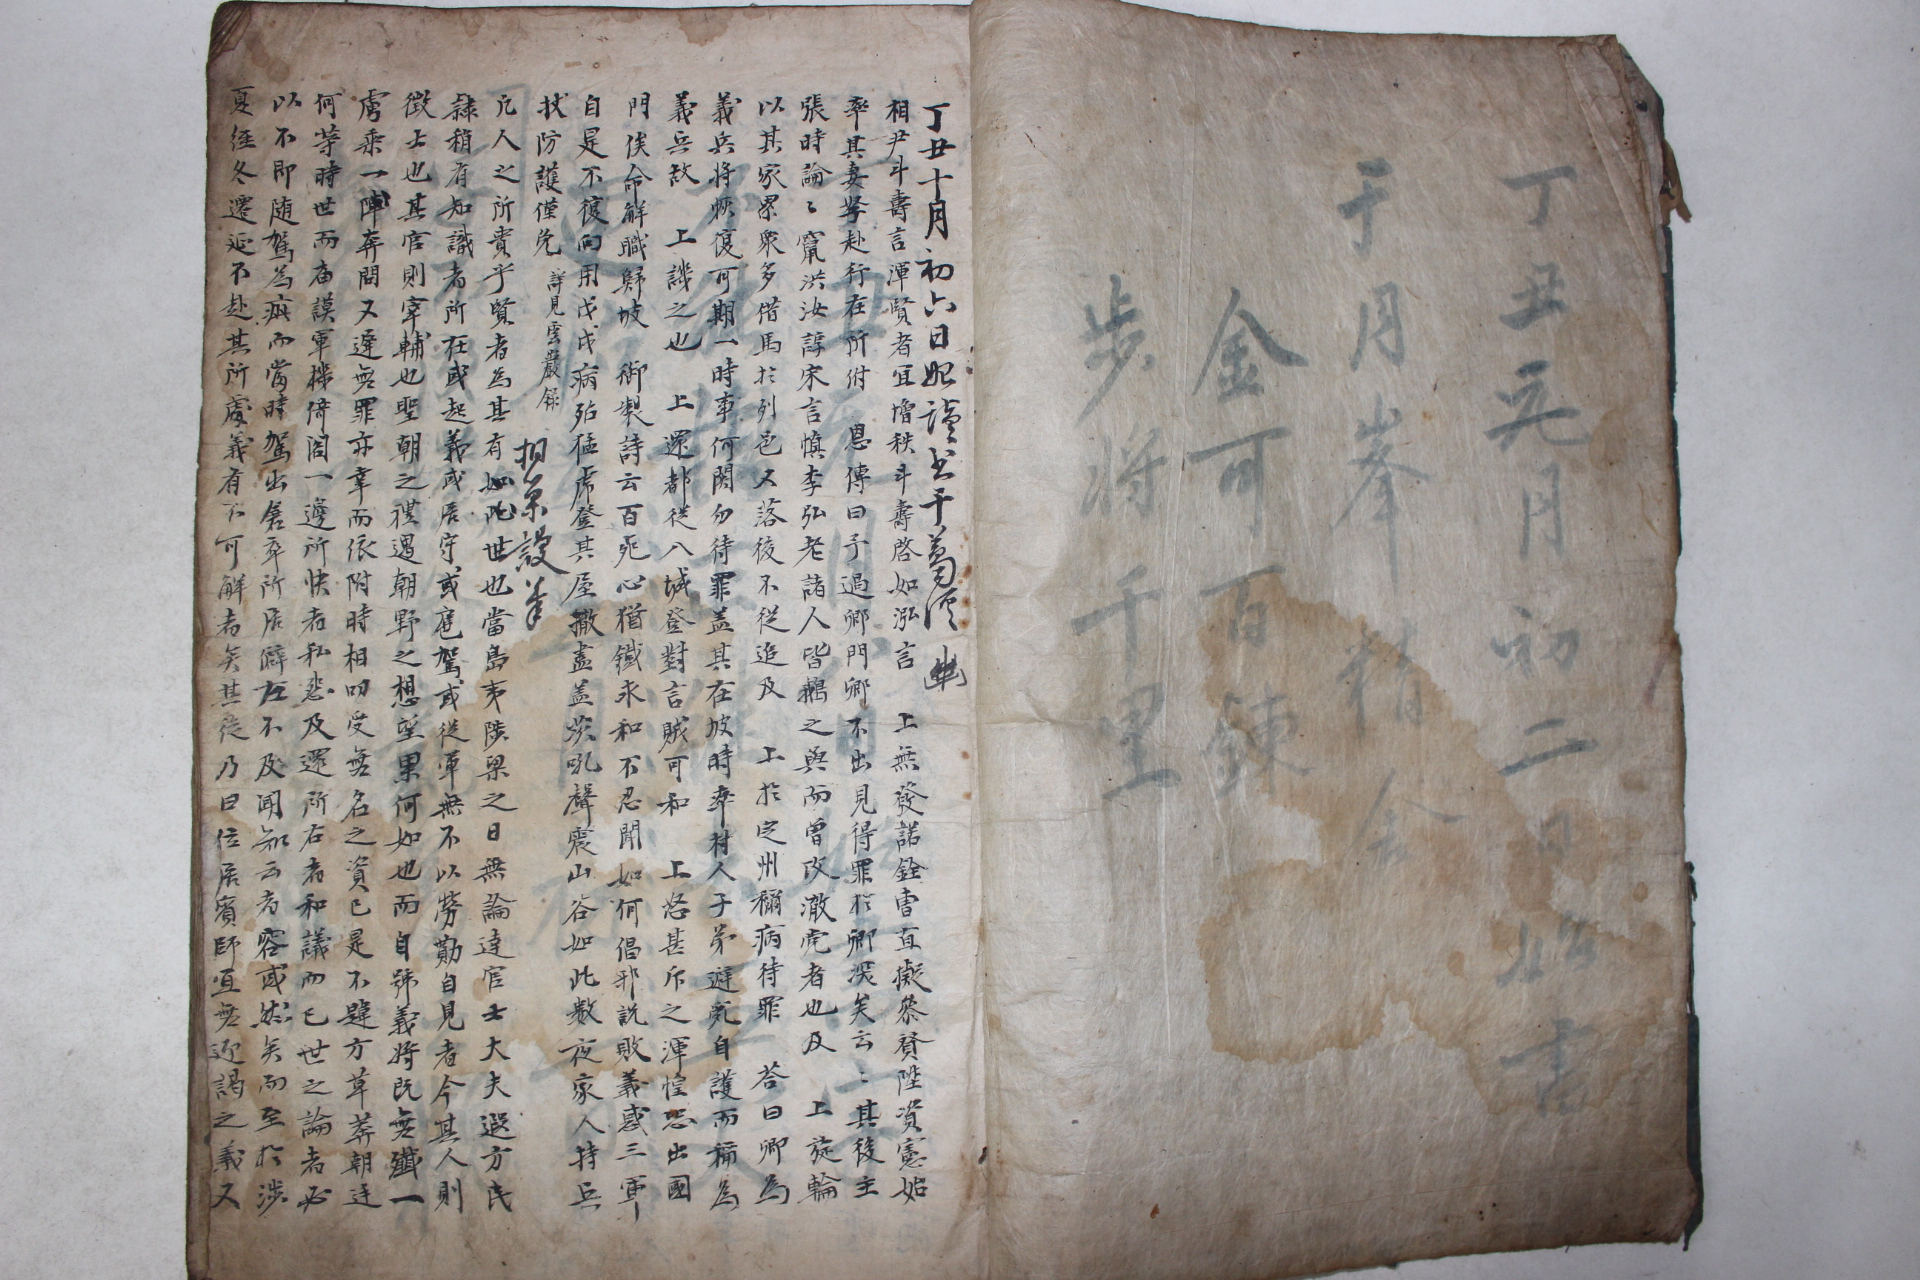 丁丑元月初二日始書
于月峯精舍
金可百鍊
步將千里
丁丑十月初六日始讀書于葛
相尹斗壽言渾賢者宜增秩斗壽啓如泓言 上無發諾銓曹直擬叅贊陞資憲始
率其妻孥赴行在所付 恩傳曰予過卿門卿不出見得罪於卿深矣云〻其後主
張時論〻竄洪汝諄宋言愼李弘老諸人皆鵝之與而曾改澈党者也及 上旋輪
以其家累衆多借馬於列邑又落後不從追及 上於定州稱病待罪 答曰卿爲
義兵將恢復可期一時事何関勿待罪盖其在坡時率村人子弟避乱自護而稱爲
義兵故 上譏之也 上還都從八城登對言賊可和 上怒甚斥之渾惶恐出國
門俟命解職歸坡 御製詩云百死心猶鐵求和不忍聞如何倡邪說敗義惑三軍
自是不復向用戊戌病殆猛虎登其屋撤盡盖茨吼聲震山谷如此数夜家人持兵
杖防護僅免 詳見雲巖錄
凡人之所貴乎賢者爲其有如此世也當島夷陟梁之日無論達官士大夫遐方民
隷稍有知識者所在或起義或居守或扈駕或從軍無不以勞勤自見者今其人則
徵士也其官則宰輔也聖朝之禮遇朝野之想望果何如也而自號義將旣無殲一
虜乘一陣奔問又遲無罪亦幸而依附時相叨受無名之資已是不韙方草莽朝廷
何等時世而庙謨軍機倚閣一邊所快者私悲及還所右者和議而已世之論者必
以不卽随駕爲病而當時駕出倉卒所居僻左不及聞知云者容或然矣而至於涉
夏經冬遷延不赴其所處義有不可解者矣其徒乃曰位居賓師宜無迎謁之義又